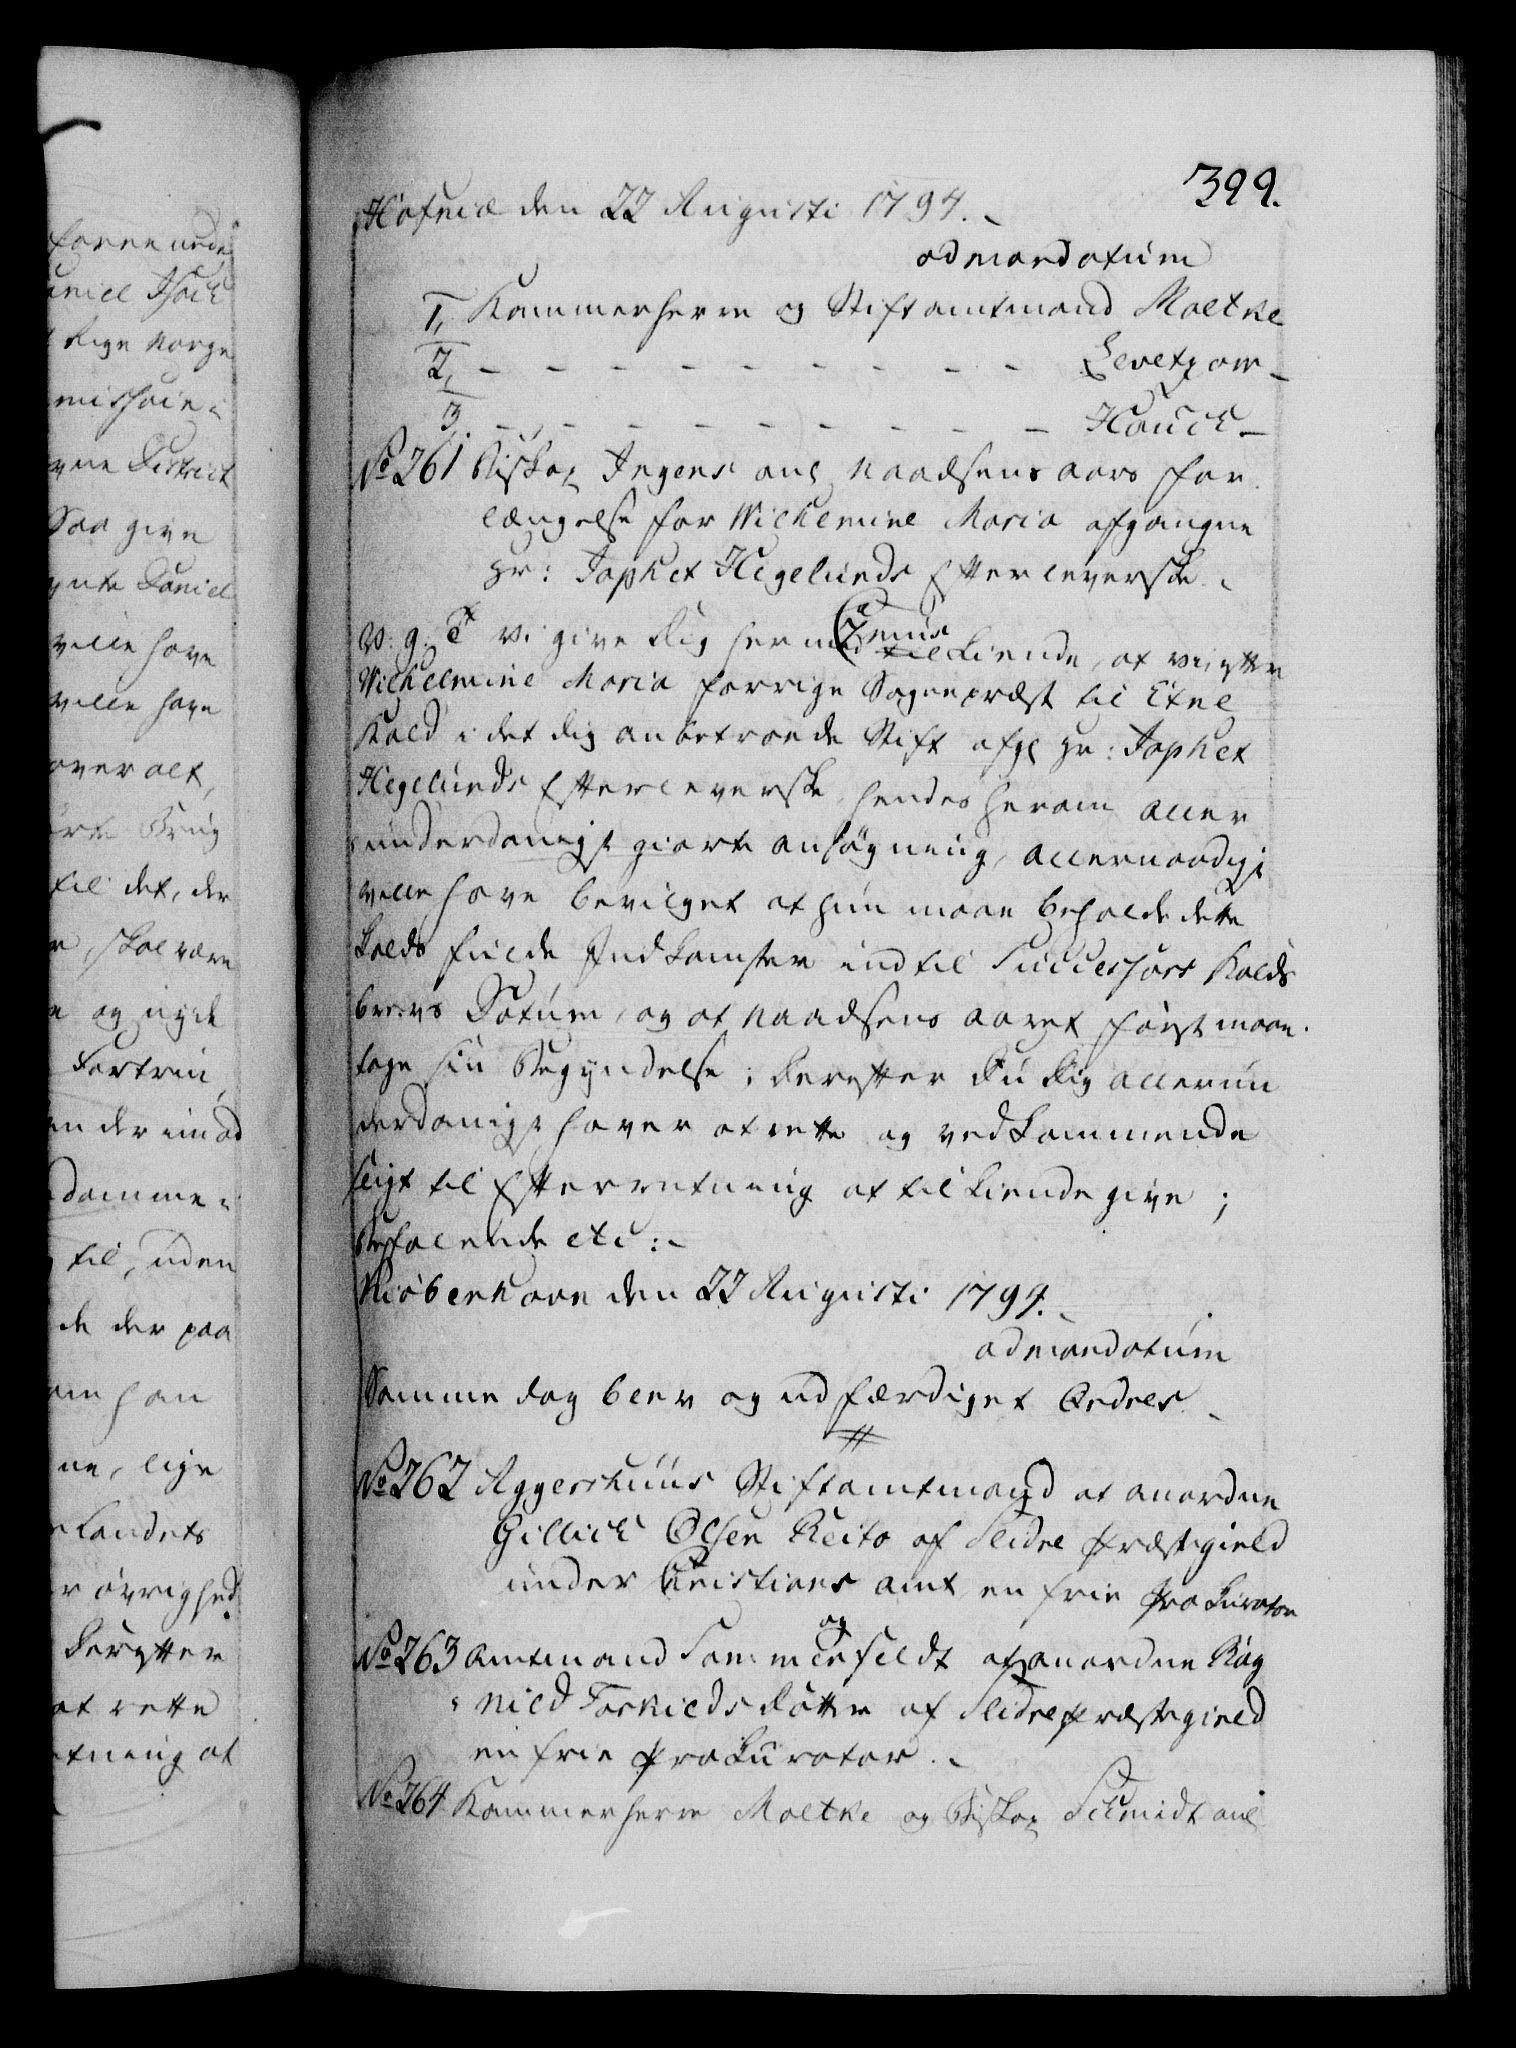 399.
Hafniæ den 22 Augusti 1794.
ad mandatum
1, Kammerherre og Stiftamtmand Moltke
2, - - - - - - - - - - Levetzow -
3, - - - - - - - - - - Hauch -
No 261 Biskop Irgens ang Naadsens aars for
længelse for Wilhelmine Maria afgangne
Hr: Japhet Hegelunds Efterleverske.
V. g. T Vi give dig hermed til kiende, at vi, efter
Wilhelmine Maria forrige Sognepræst til Etne
Kald i det dig anbetroede Stift afg Hr: Japhet
Hegelunds Efterleverske hendes herom aller
underdanigst giorte ansøgning, allernaadigst
ville have bevilget at hun maae beholde dette
Kalds fulde Indkomster indtil Successors Kalds
brevs Datum, og at Naadsens aaret først maae
tage sin Begyndelse; derefter du dig allerun
derdanigst haver at rette og vedkommende
sligt til Efterretning at tilkiende give;
Befalende etc:
Kiøbenhavn den 22 Augusti 1794.
ad mandatum
Samme dag blev og udfærdiget Ordres
No 262 Aggershuus Stiftamtmand at anordne
Gillich Olsen Reito af Slidre Præstegield
under Christians Amt en frie Prokurator
No 263 Amtmand Sommerfeldt og at anordne Rag
nild Torkildsdatter af Slidre Præstegield
en frie Prokurator.
No 264 Kammerherre Moltke og Biskop Schmidt ang